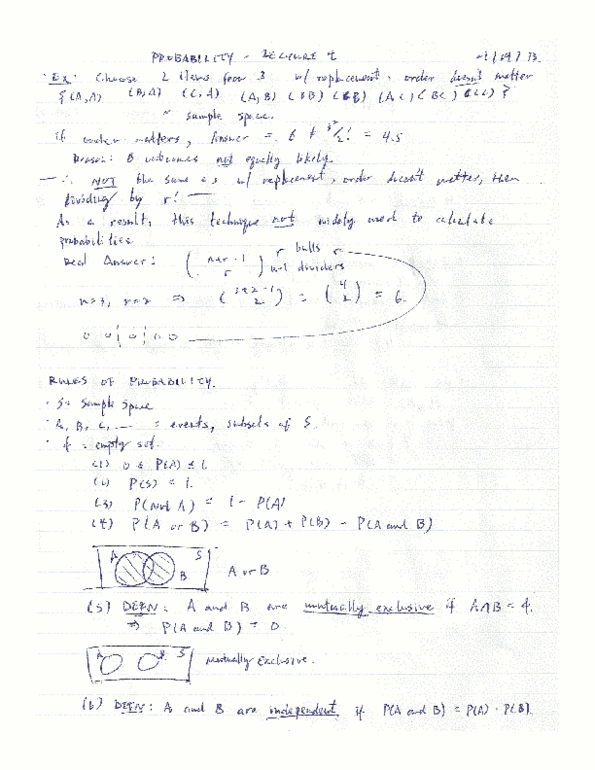 PROBABILITY - LECTURE
Ex: Choose 2 items from 3 w/ replacement, order doesn't matter
{(A,A) (B,A) (C,A) (A,B) (BB) (CB) (AC) (BC) (CC)}
sample space.
if order matters, Answer = 6 ≠ 3²/2! = 4.5
Reason: outcomes not equally likely.
—∴ NOT the same as w/ replacement, order doesn't matter, then
dividing by r! —
As a result, this technique not widely used to calculate
probabilities
Real Answer: (n+r-1 r) r balls n-1 dividers
n=3, r=2 ⇒ (3+2-1 2) = (4 2) = 6.
RULES OF PROBABILITY.
· S = Sample Space
· A, B, C, ... = events, subsets of S.
· ϕ = empty set.
(1) 0 ≤ P(A) ≤ 1.
(2) P(S) = 1.
(3) P(not A) = 1 - P(A)
(4) P(A or B) = P(A) + P(B) - P(A and B)
A B S A or B
(5) DEFN: A and B are mutually exclusive if A∩B = ϕ.
⇒ P(A and B) = 0
A B S mutually exclusive.
(6) DEFN: A and B are independent if P(A and B) = P(A) · P(B).